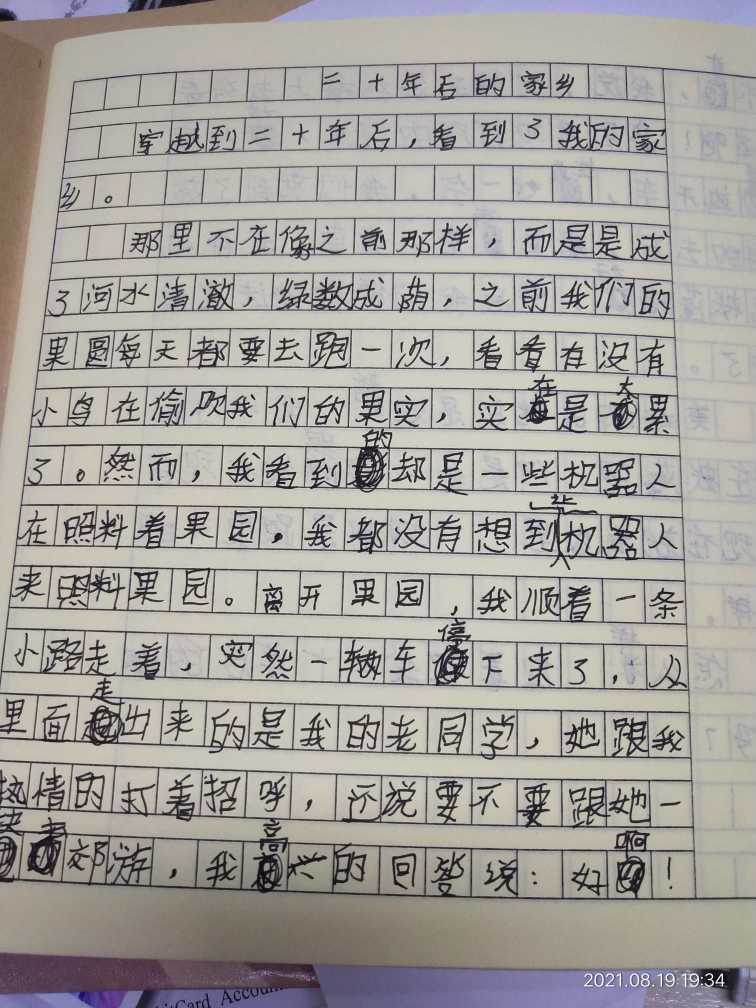 二十年后的家乡
穿越到二十年后，看到了我的家
乡。
那里不在像之前那样，而是是成
了河水清澈，绿数成荫，之前我们的
果圆每天都要去跑一次，看看有没有
小鸟在偷吹我们的果实，实在是太累
了。然而，我看到的却是一些机器人
在照料着果园。我都没有想到一些机器人
来照料果园。离开果园，我顺着一条
小路走着，突然一辆车停下来了，从
里面走出来的是我的老同学，她跟我
热情的打着招呼，还说要不要跟她一
去郊游，我高兴的回答说：好啊！
2021.08.19 19:34
Card Accou